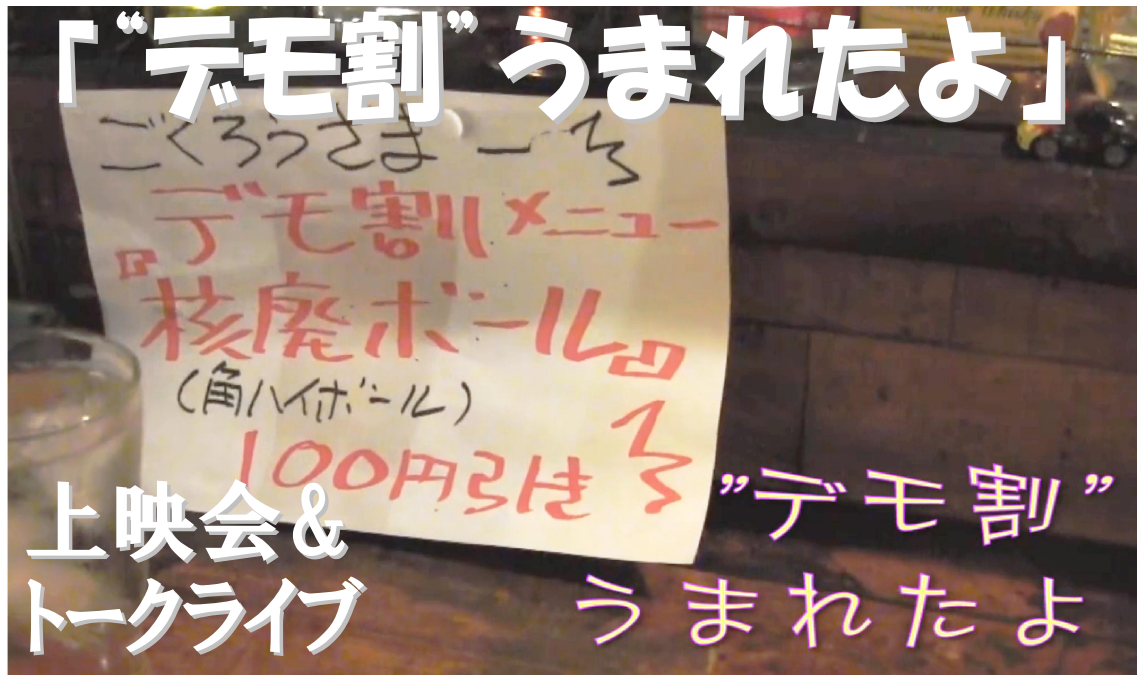 「“デモ割”うまれたよ」
ごくろうさまー〜
デモ割メニュー
『核廃ボール』
(角ハイボール)
100円引き〜
上映会&
トークライブ
”デモ割”
うまれたよ